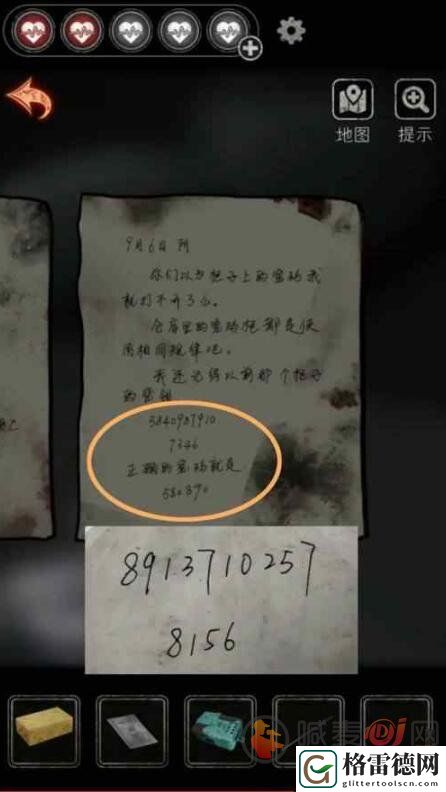 地图
提示
9月6日 阴
你们以为柜子上的密码我
就打不开了么。
仓库里的密码柜都是使
用相同规律吧。
我还记得以前那个柜子
的密码
7346
正确的密码就是
8913710257
8156
喊麦DJ网
格雷德网
www.glittertoolscn.com